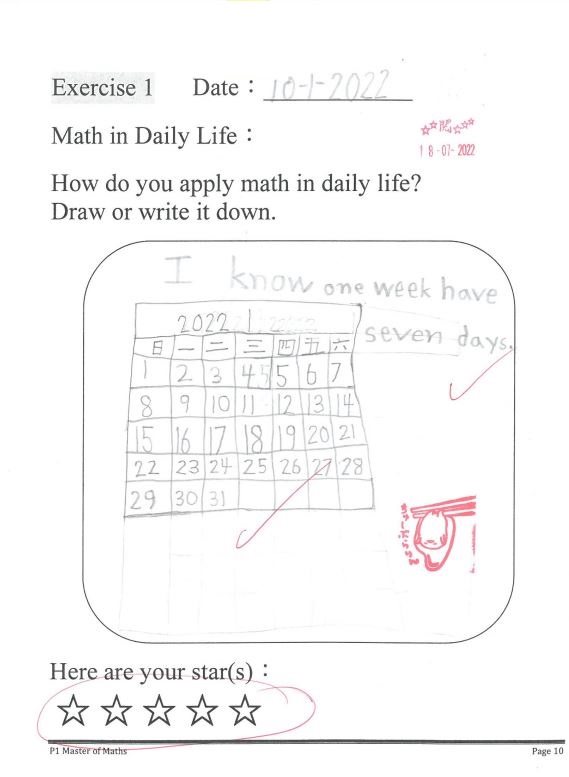 Exercise 1 Date : 10-1-2022
Math in Daily Life :
閱
18-07-2022
How do you apply math in daily life?
Draw or write it down.
I know one week have
seven days.
2022 1
日 一 二 三 四 五 六
1 2 3 4 5 6 7
8 9 10 11 12 13 14
15 16 17 18 19 20 21
22 23 24 25 26 27 28
29 30 31
Here are your star(s) :
P1 Master of Maths Page 10